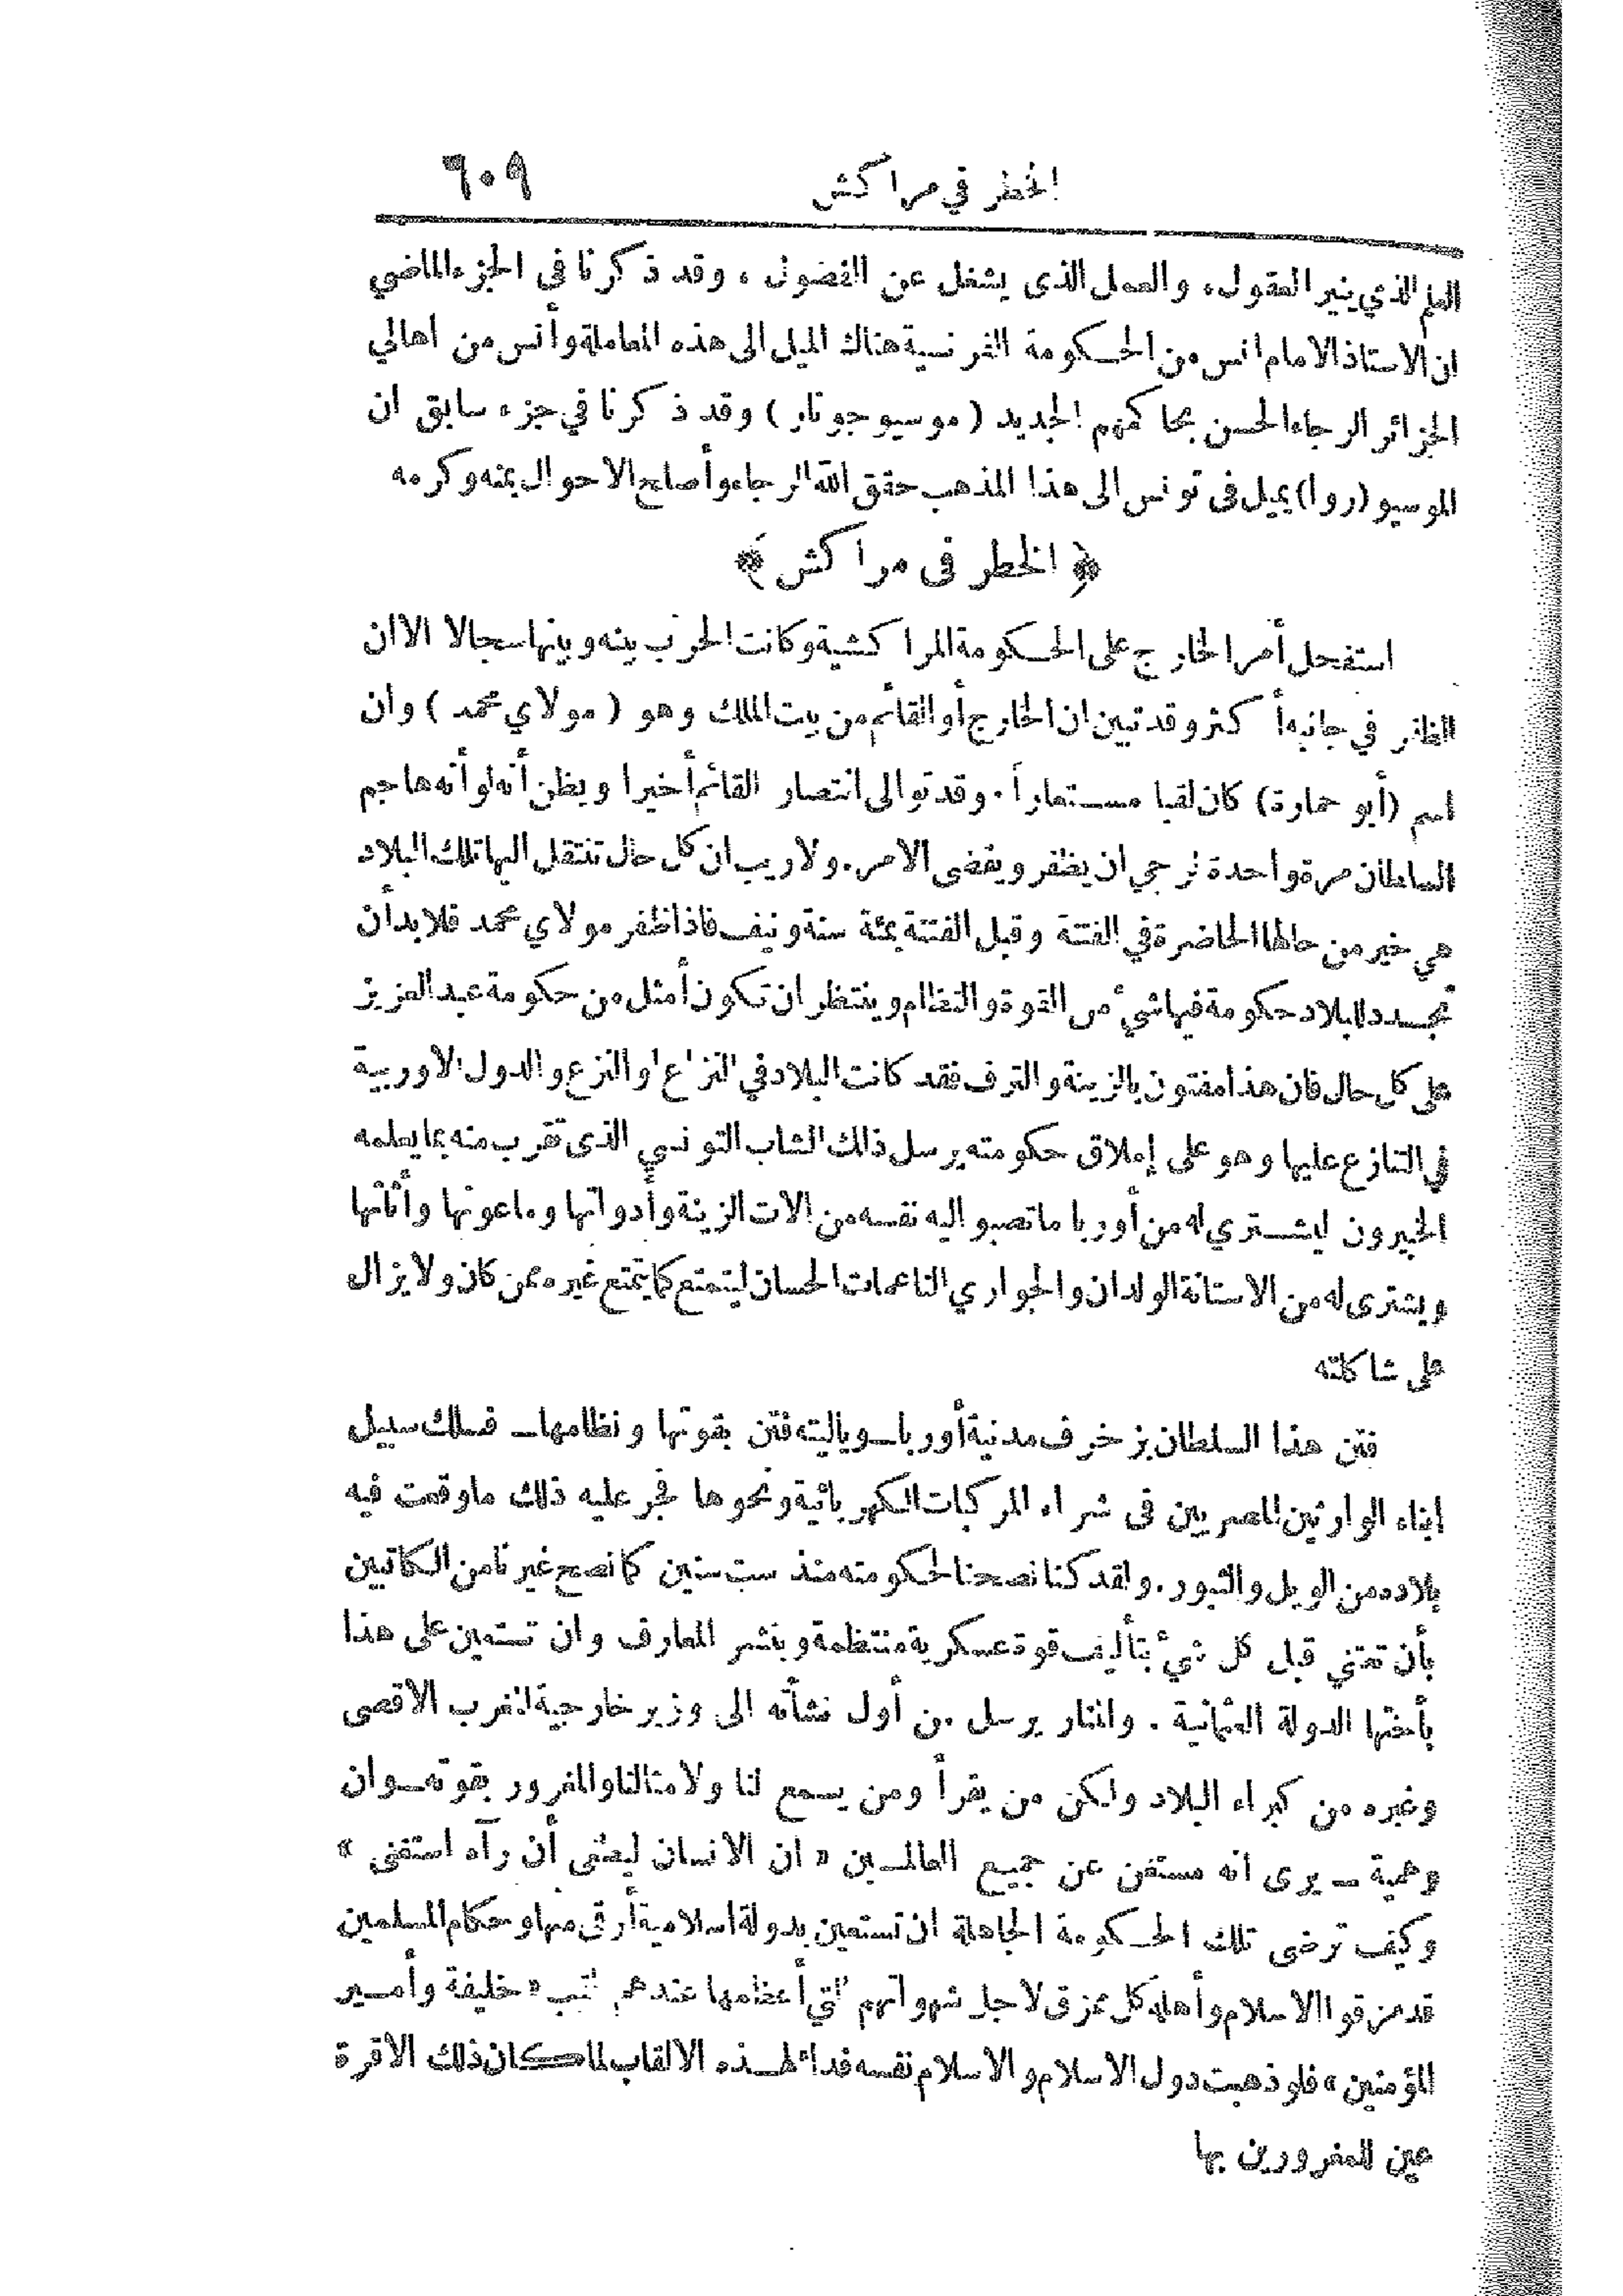 الخطر في مراكش ٦٠٩
العلم الذي ينير العقول، والعمل الذى يشغل عن الفضول، وقد ذكرنا في الجزء الماضي
ان الاستاذ الامام انس من الحكومة الفرنسية هناك الميل الى هذه المعاملة وأنس من اهالي
الجزائر الرجاء الحسن بحاكمهم الجديد (موسيو جونار) وقد ذكرنا في جزء سابق ان
الموسيو (روا) يميل فى تونس الى هذا المذهب حقق الله الرجاء وأصلح الاحوال بمنه وكرمه
﴿ الخطر فى مراكش ﴾
استفحل أمر الخارج على الحكومة المراكشية وكانت الحرب بينه وبينها سجالا الا ان
الظفر في جانبه أكثر وقد تبين ان الخارج أو القائم من بيت الملك وهو (مولاي محمد) وان
اسم (أبو حمارة) كان لقبا مستعاراً. وقد توالى انتصار القائم أخيرا ويظن أنه لو أنه هاجم
السلطان مرة واحدة لرجي ان يظفر ويقضى الامر. ولا ريب ان كل حال تنتقل اليها تلك البلاد
هي خير من حالها الحاضرة في الفتنة وقبل الفتنة بمئة سنة ونيف فاذا ظفر مولاي محمد فلا بد أن
تجدد للبلاد حكومة فيها شيء من القوة والنظام وينتظر ان تكون أمثل من حكومة عبد العزيز
على كل حال فان هذا مفتون بالزينة والترف فقد كانت البلاد في النزاع او النزع والدول الاوربية
في التنازع عليها وهو على إملاق حكومته يرسل ذلك الشاب التونسي الذى تقرب منه بما يعلمه
الخبيرون ليشتري له من أوربا ما تصبو اليه نفسه من الات الزينة وأدواتها وماعونها وأثاثها
ويشترى له من الاستانة الولدان والجواري الناعمات الحسان ليتمتع كما يتمتع غيره ممن كان ولا يزال
على شاكلته
فتن هذا السلطان بزخرف مدنية أوربا ــ وياليته فتن بقوتها ونظامها ــ فسلك سبيل
ابناء الوارثين المصريين فى شراء المركبات الكهربائية ونحوها فجر عليه ذلك ما وقعت فيه
بلاده من الويل والثبور. ولقد كنا نصحنا لحكومته منذ ست سنين كما نصح غيرنا من الكاتبين
بأن تعتني قبل كل شيء بتأليف قوة عسكرية منتظمة وبنشر المعارف وان تستعين على هذا
بأختها الدولة العثمانية. والمنار يرسل من أول نشأته الى وزير خارجية الغرب الاقصى
وغيره من كبراء البلاد ولكن من يقرأ ومن يسمع لنا ولامثالنا والمغرور بقوته ــ وان
وهمية ــ يرى انه مستغن عن جميع العالمين «ان الانسان ليطغى أن رآه استغنى»
وكيف ترضى تلك الحكومة الجاهلة ان تستعين بدولة اسلامية أرقى منها وحكام المسلمين
قد مزقوا الاسلام وأهله كل ممزق لاجل شهواتهم التي أعظمها عندهم لقب «خليفة وأمير
المؤمنين» فلو ذهبت دول الاسلام والاسلام نفسه فداء لهذه الالقاب لما كان ذلك الا قرة
عين للمغرورين بها